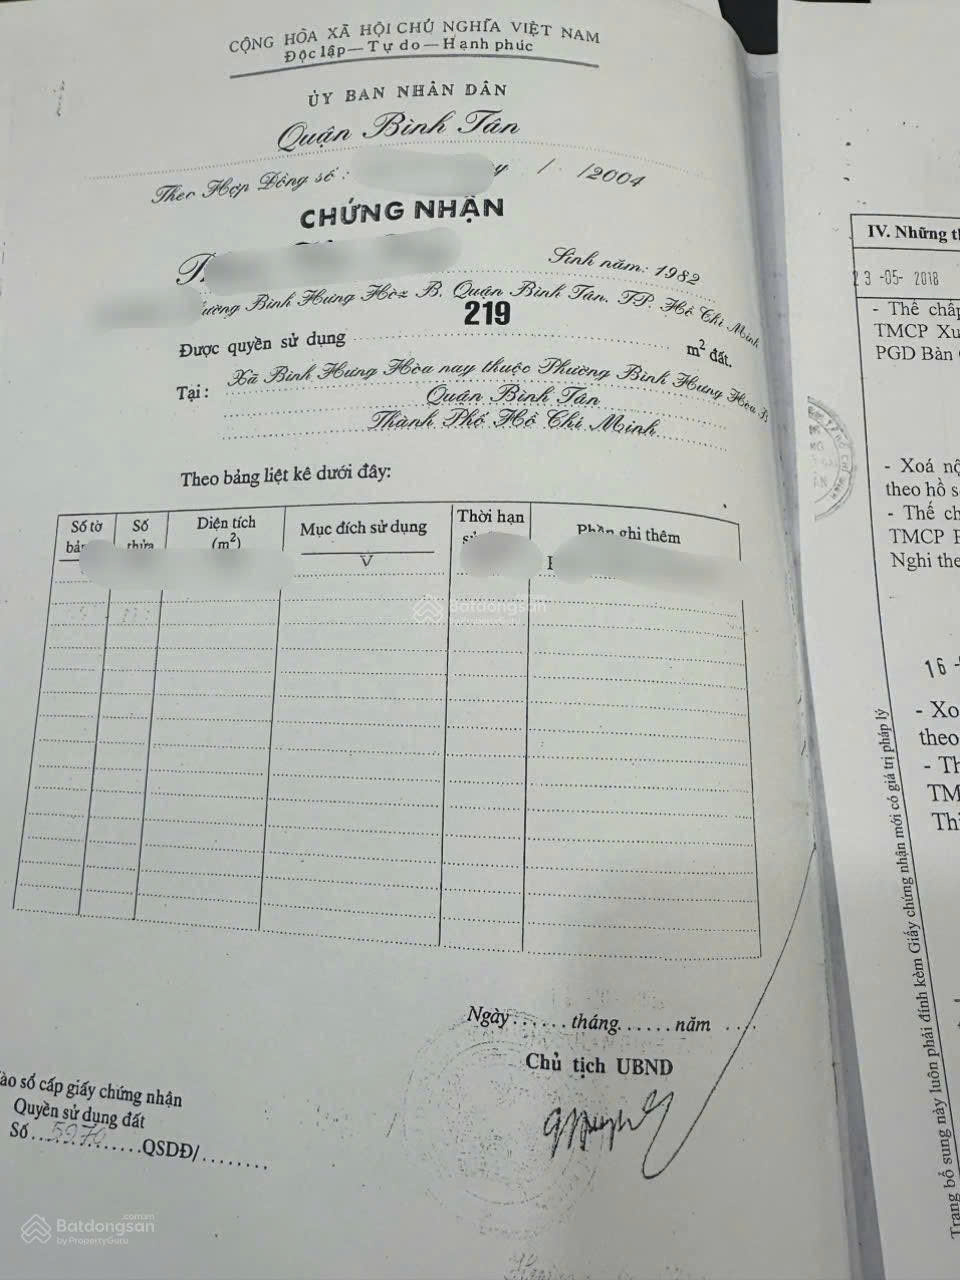 CỘNG HÒA XÃ HỘI CHỦ NGHĨA VIỆT NAM
Độc lập — Tự do — Hạnh phúc
ỦY BAN NHÂN DÂN
Quận Bình Tân
Theo Hợp Đồng số : / . /2004
CHỨNG NHẬN
Sinh năm: 1982
Bình Hưng Hòa B, Quận Bình Tân, TP. Hồ Chí Minh
219
Được quyền sử dụng m² đất.
Tại : Xã Bình Hưng Hòa nay thuộc Phường Bình Hưng Hòa B
Quận Bình Tân
Thành Phố Hồ Chí Minh
Theo bảng liệt kê dưới đây:
Số tờ Số thửa Diện tích (m²) Mục đích sử dụng Thời hạn Phần ghi thêm
V
Batdongsan
by PropertyGuru
Ngày ...... tháng ...... năm ....
Chủ tịch UBND
sổ cấp giấy chứng nhận
Quyền sử dụng đất
Số ... QSDĐ/ ........
.com.vn
Batdongsan
by PropertyGuru
IV. Những
23 -05- 2018
- Thế chấp
TMCP Xu
PGD Bàn
- Xoá
theo hồ
- Thế
TMCP
Nghi
16
- Xo
theo
- Th
TM
Thi
Trang bổ sung này luôn phải đính kèm Giấy chứng nhận mới có giá trị pháp lý